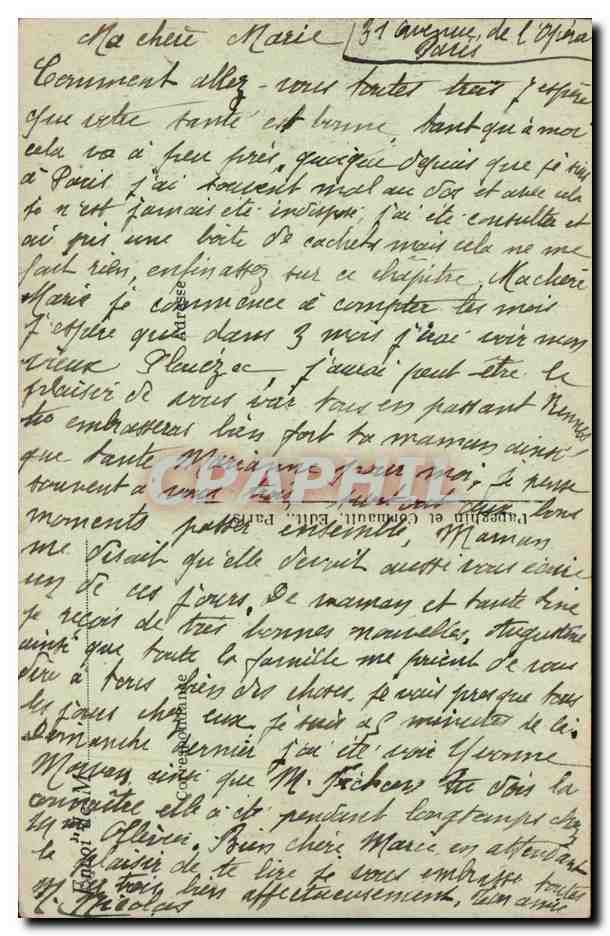 Ma chère Marie 31 avenue de l'Opéra
Paris
Comment allez-vous toutes trois j'espère
que votre santé est bonne, tant qu'à moi
cela va à peu près, quoique depuis que je suis
à Paris j'ai souvent mal au dos et avec cela
je n'est jamais été indisposé j'ai été consulter et
ai pris une boîte de cachets mais cela ne me
fait rien, enfin assez sur ce chapitre. Ma chère
Marie je commence à compter les mois
J'espère que dans 3 mois j'irai voir mon
vieux Plouézec, j'aurai peut être le
plaisir de vous voir tous en passant Rennes
tu embrasseras bien fort ta maman ainsi
que tante Marianne pour moi, je pense
souvent à vous trois bons
moments passer ensemble, Maman
me disait qu'elle devait aussi vous écrire
un de ces jours. De maman et tante
je reçois de très bonnes nouvelles. Augustine
ainsi que toute la famille me prient de vous
dire à tous bien des choses. je vais presque tous
les jours chez eux je suis à 5 minutes de là.
Demanche dernier j'ai été voir Yvonne
Morvan ainsi que M. tu dois la
connaître elle a été pendant longtemps chez
Mme Ollivier. Bien chère Marie en attendant
le plaisir de te lire je vous embrasse toutes
trois bien affectueusement, Ton amie
M. Nicolas
Adresse
Papeghin et Cormault, Edit., Paris
Correspondance
Envoi de M
CPAPHIL